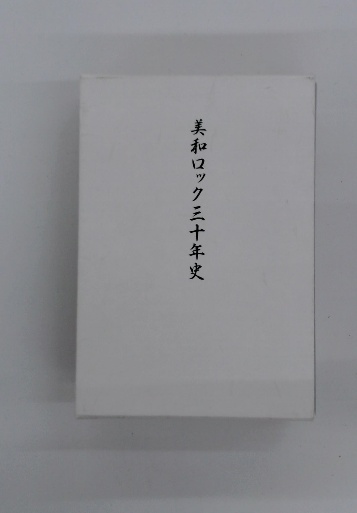 美和ロック三十年史